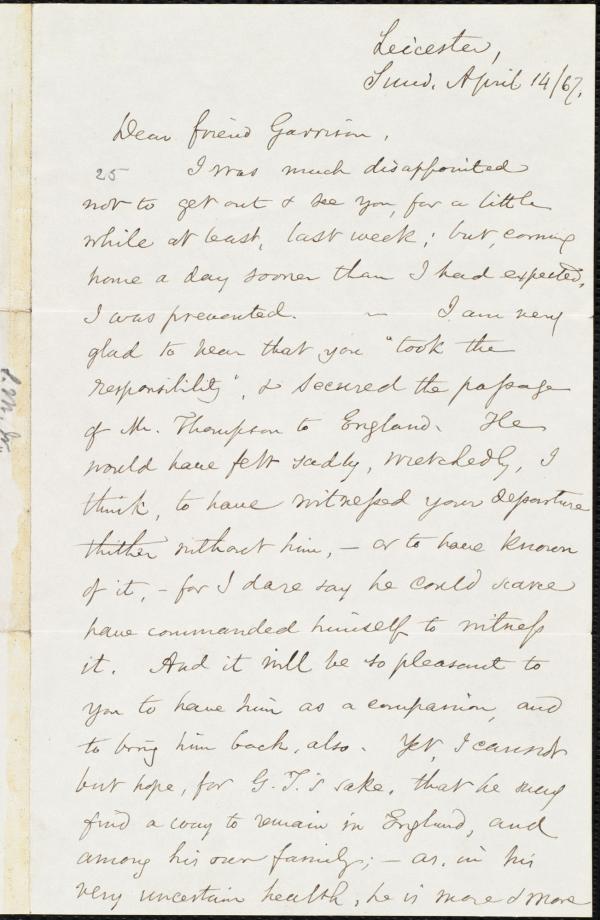 Leicester,
Sund. April 14/67.
Dear friend Garrison,
25 I was much disappointed
not to get out & see you, for a little
while at least, last week; but, coming
home a day sooner than I had expected,
I was prevented. ~ I am very
glad to hear that you "took the
responsibility", & secured the passage
of Mr. Thompson to England. He
would have felt sadly, wretchedly, I
think, to have witnessed your departure
thither without him, - or to have known
of it, - for I dare say he could scarce
have commanded himself to witness
it. And it will be so pleasant to
you to have him as a companion, and
to bring him back, also. Yet, I cannot
but hope, for G. T.'s sake, that he may
find a way to remain in England, and
among his own family; - as, in his
very uncertain health, he is more & more